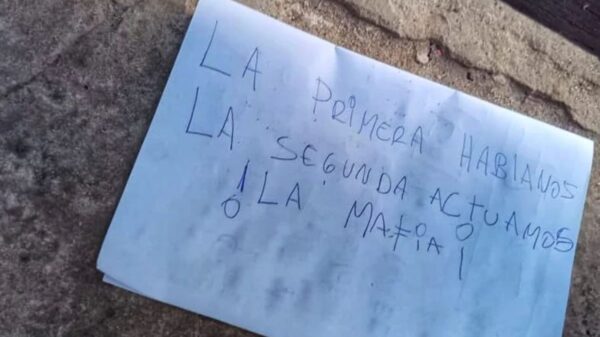 LA PRIMERA HABlANOS
LA SEGUNDA ACTUAMOS
! LA MAFiA ¡